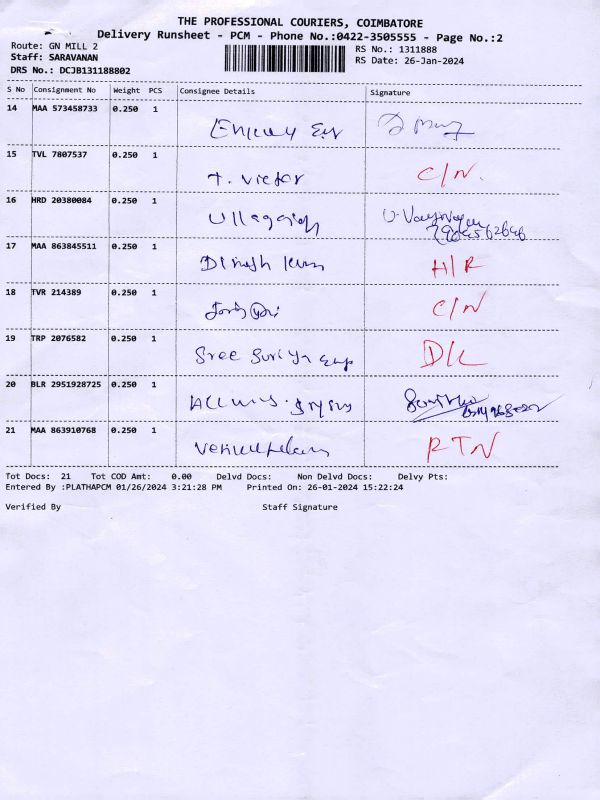 THE PROFESSIONAL COURIERS, COIMBATORE
Delivery Runsheet - PCM - Phone No.:0422-3505555 - Page No.:2
Route: GN MILL 2
RS No.: 1311888
Staff: SARAVANAN
RS Date: 26-Jan-2024
DRS No.: DCJB131188802
S No Consignment No Weight PCS Consignee Details Signature
14 MAA 573458733 0.250 1
15 TVL 7807537 0.250 1
T. Victor C/N.
16 HRD 20380084 0.250 1
17 MAA 863845511 0.250 1
Dinesh H/R
18 TVR 214389 0.250 1
C/N
19 TRP 2076582 0.250 1
Sree Suriya D/L
20 BLR 2951928725 0.250 1
21 MAA 863910768 0.250 1
RTN
Tot Docs: 21 Tot COD Amt: 0.00 Delvd Docs: Non Delvd Docs: Delvy Pts:
Entered By :PLATHAPCM 01/26/2024 3:21:28 PM Printed On: 26-01-2024 15:22:24
Verified By Staff Signature